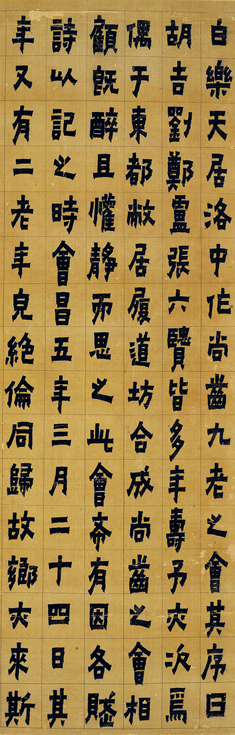 白樂天居洛中作尚齒九老之會其序曰
胡吉劉鄭盧張六賢皆多年壽予亦次焉
偶于東都敝居履道坊合成尚齒之會相
顧既醉且懽靜而思之此會希有因各賦
詩以記之時會昌五年三月二十四日其
年又有二老年皃絕倫同歸故鄉亦來斯